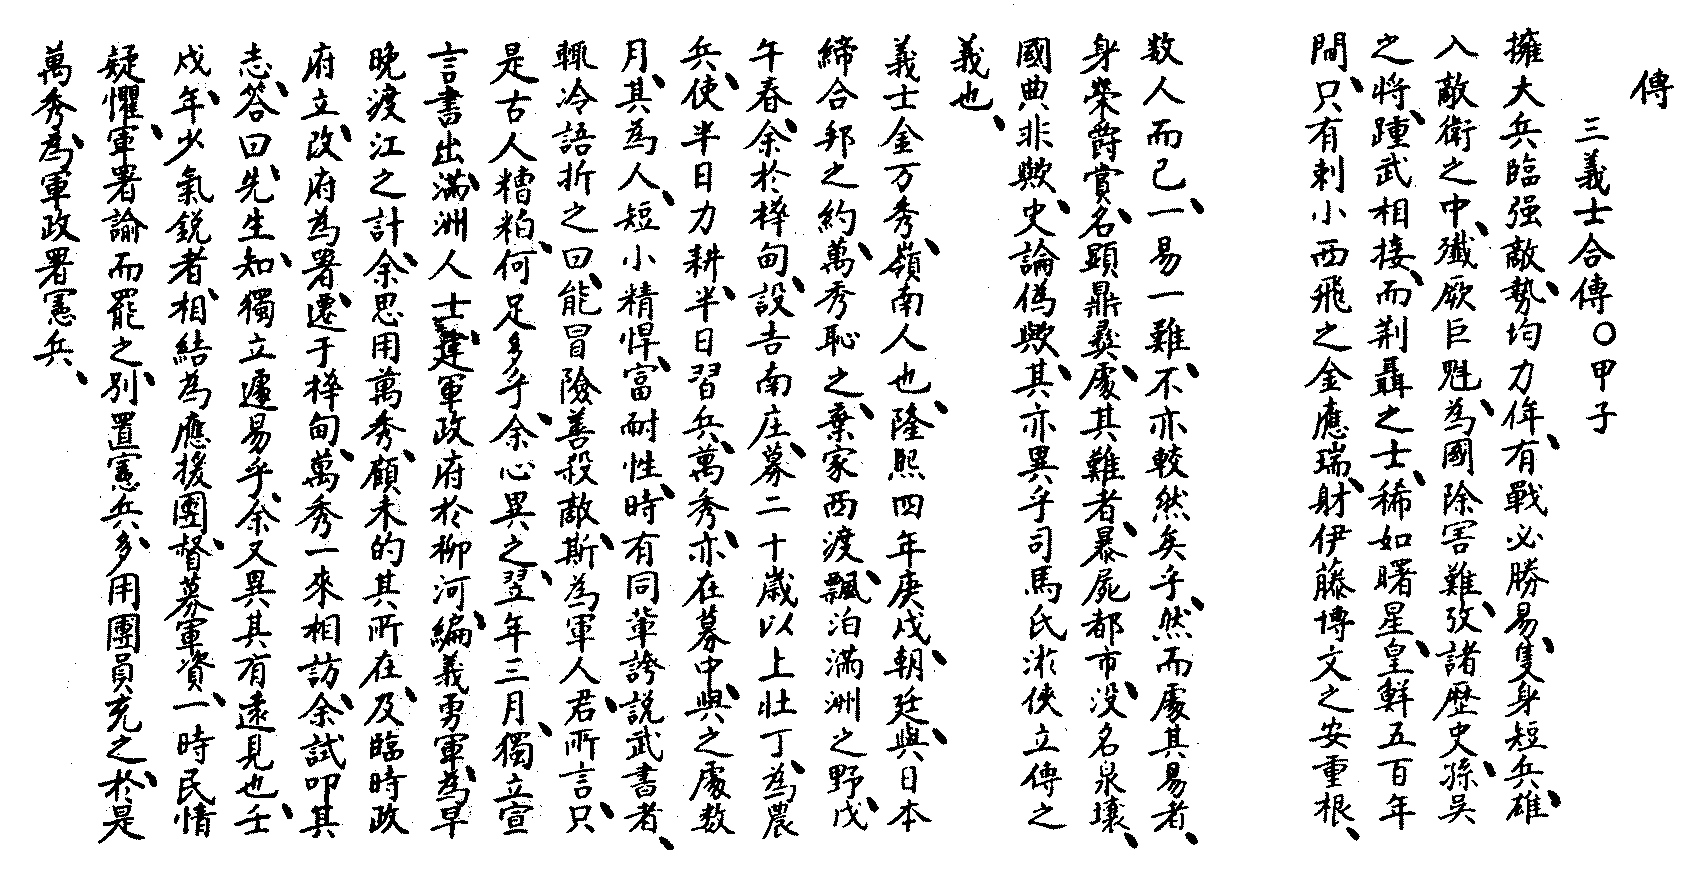 傳
三義士合傳〇甲子
擁大兵臨强敵、勢均力侔、有戰必勝易、隻身短兵、雄
入敵衛之中、殲厥巨魁、為國除害難、攷諸歷史、孫吳
之將、踵武相接、而荊聶之士、稀如曙星、皇鮮五百年
間、只有刺小西飛之金應瑞、財伊藤博文之安重根、
数人而已、一易一難、不亦較然矣乎、然而處其易者、
身榮爵賞、名顯鼎彜、處其難者、暴屍都市、没名泉壤、
國典非歟、史論偽歟、其亦異乎司馬氏游俠立傳之
義也、
義士金万秀、嶺南人也、隆熙四年庚戌、朝廷與日本
締合邦之約、萬秀恥之、棄家西渡、飄泊滿洲之野、戊
午春、余於樺甸、設吉南庄、募二十歲以上壯丁、為農
兵、使半日力耕、半日習兵、萬秀亦在募中、與之處数
月、其為人、短小精悍、富耐性、時有同輩誇説武書者、
輒冷語折之曰、能冒險善殺敵、斯為軍人、君所言、只
是古人糟粕、何足多乎、余心異之、翌年三月、獨立宣
言書出、滿洲人士、建軍政府於柳河、編義勇軍、為早
晩渡江之計、余思用萬秀、顧未的其所在、及臨時政
府立、改府為署、遷于樺甸、萬秀一來相訪、余試叩其
志、答曰、先生知獨立遽易乎、余又異其有遠見也、壬
戌、年少氣鋭者、相結為應援團、督募軍資、一時民情
疑懼、軍署諭而罷之、別置憲兵、多用團員充之、於是
萬秀為軍政署憲兵、